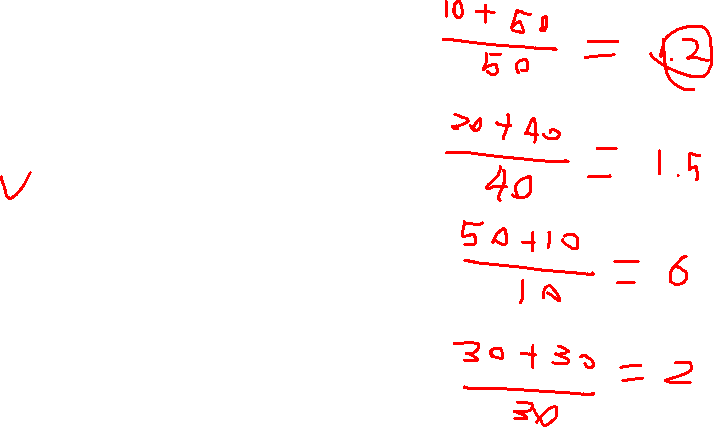 10 + 50
50
= 1.2
20 + 40
40
= 1.5
V
50 + 10
10
= 6
30 + 30
30
= 2